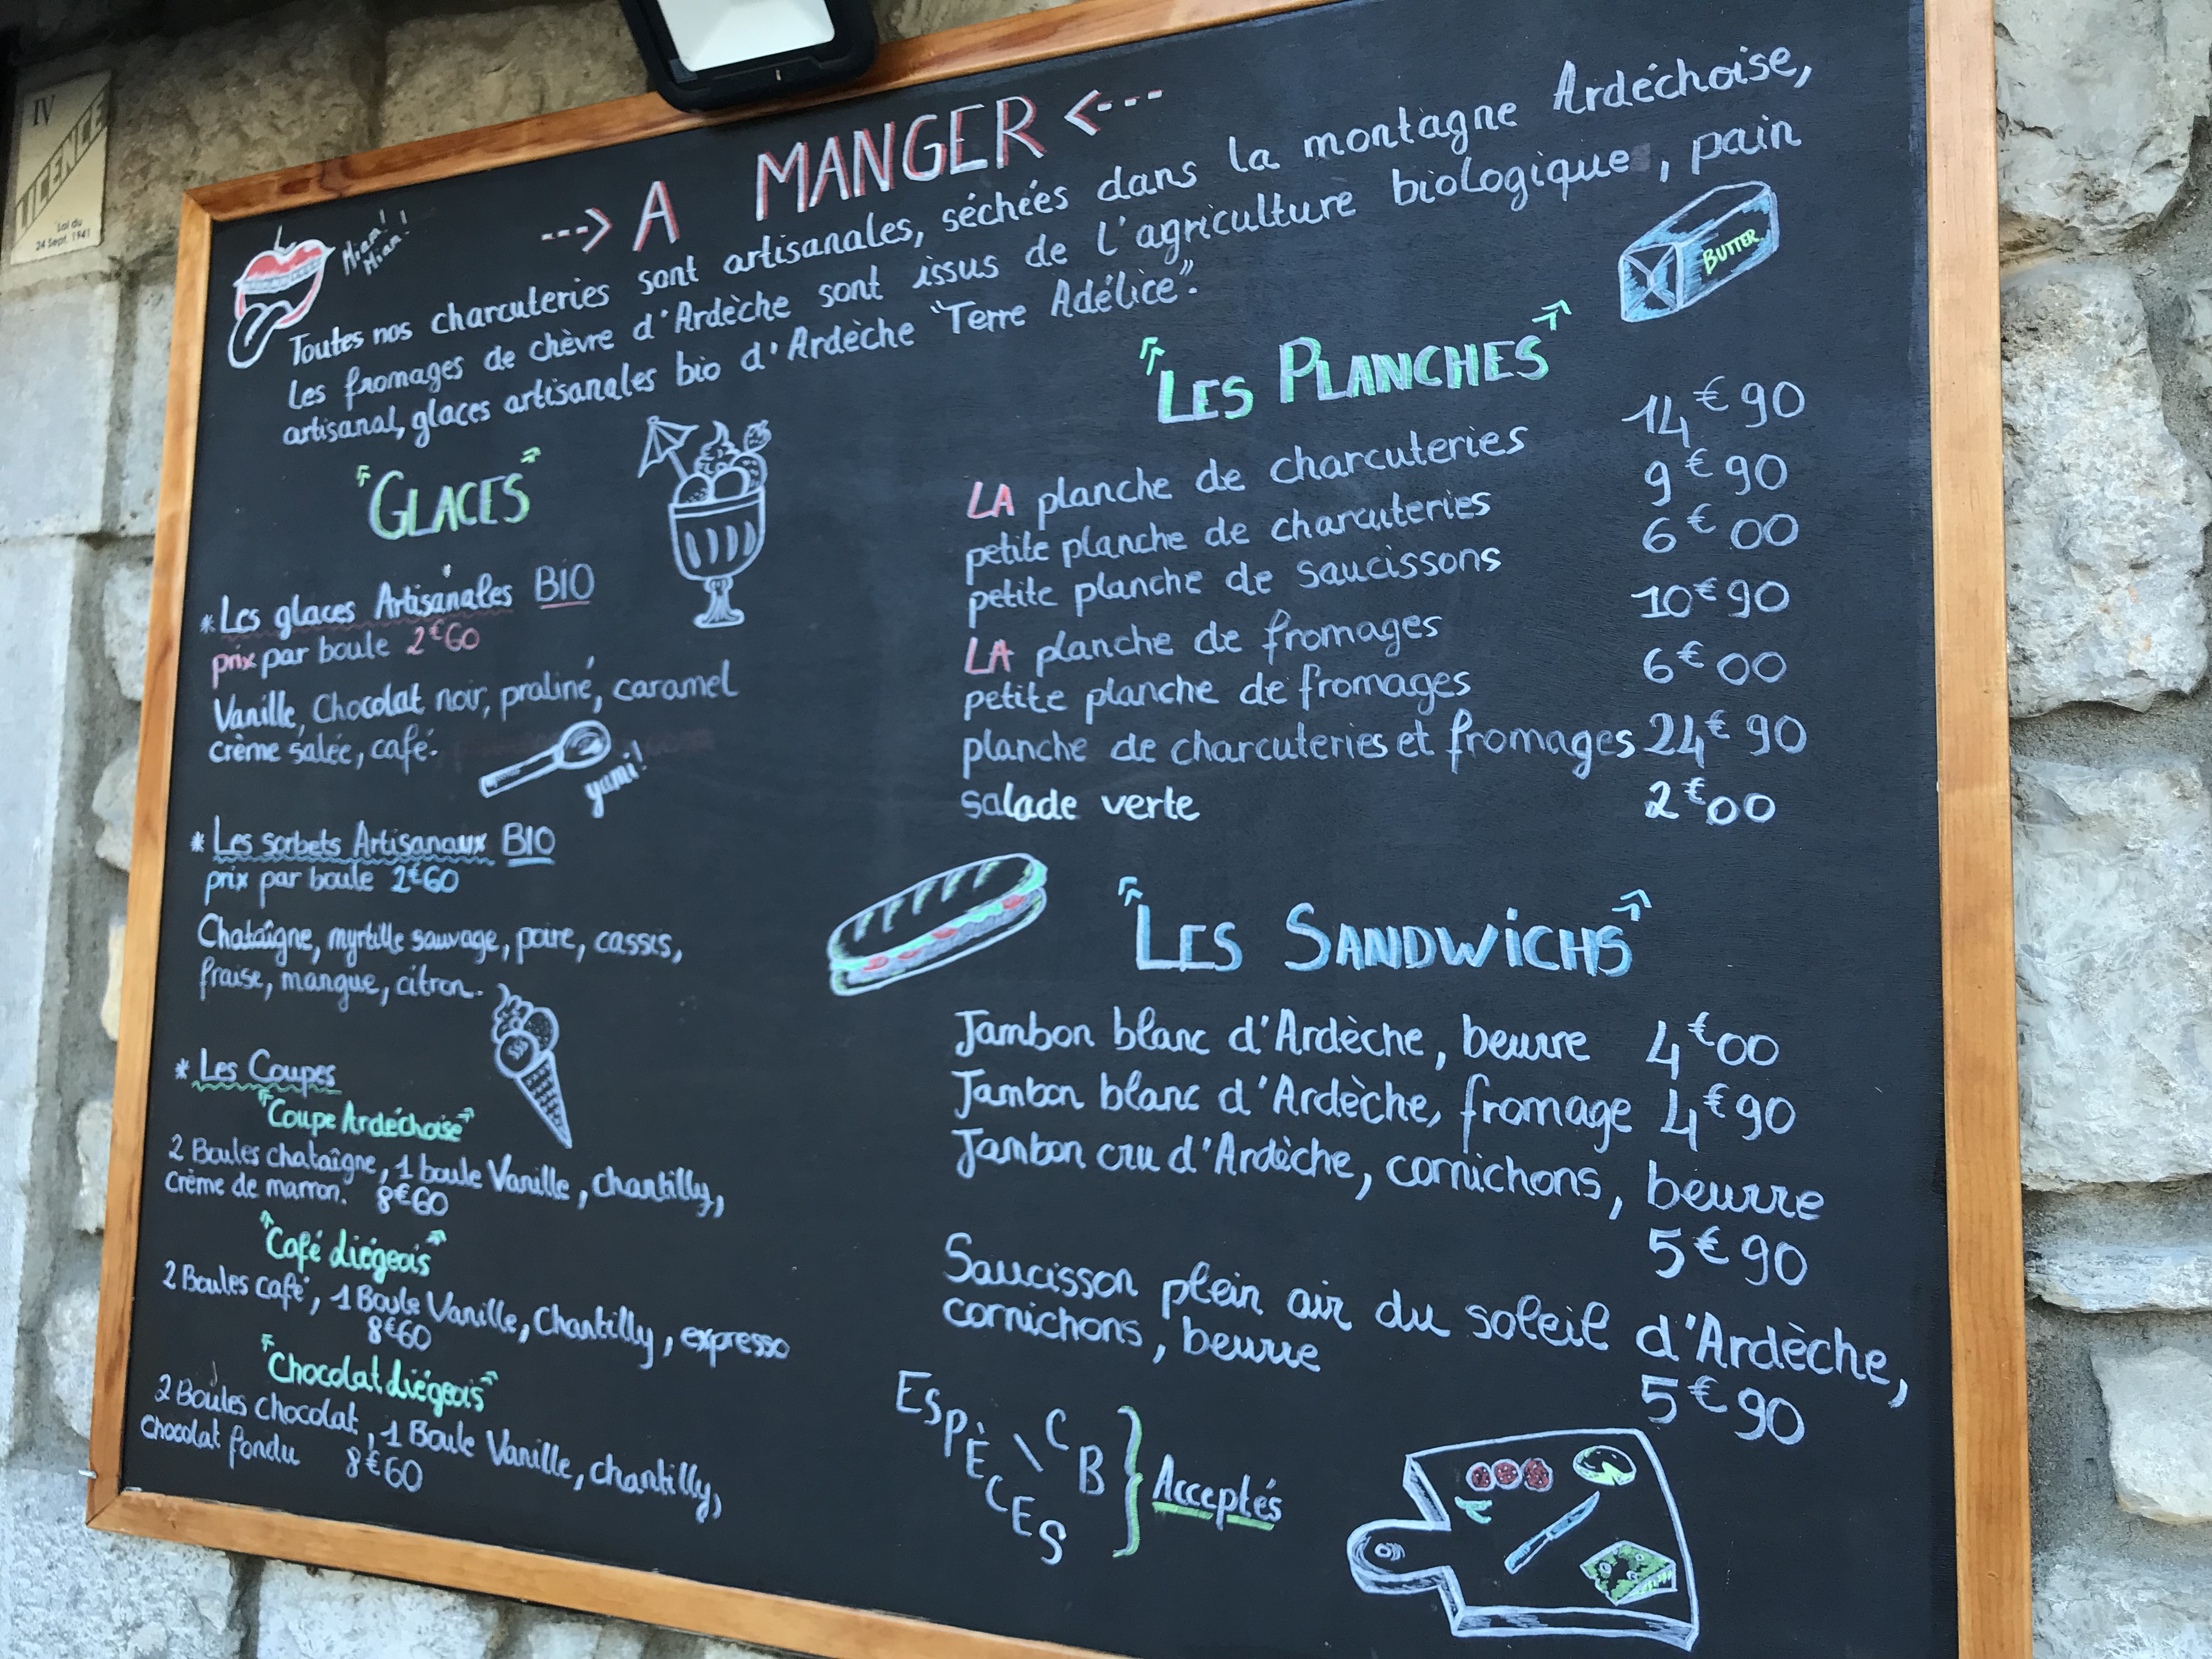 IV
LICENCE
Loi du
24 Sept. 1941
---> A MANGER <---
Miam!
Miam!
Toutes nos charcuteries sont artisanales, séchées dans la montagne Ardéchoise,
Les fromages de chèvre d'Ardèche sont issus de l'agriculture biologique, pain
artisanal, glaces artisanales bio d'Ardèche "Terre Adélice".
GLACES
*Les glaces Artisanales BIO
prix par boule 2€60
Vanille, Chocolat noir, praliné, caramel
crème salée, café.
yami!
* Les sorbets Artisanaux BIO
prix par boule 2€60
Chataîgne, myrtille sauvage, poire, cassis,
fraise, mangue, citron.
* Les Coupes
Coupe Ardéchoise
2 Boules chataîgne, 1 boule Vanille, chantilly,
Crème de marron. 8€60
Café Liégeois
2 Boules café, 1 Boule Vanille, Chantilly, expresso
8€60
Chocolat Liégeois
2 Boules chocolat, 1 Boule Vanille, chantilly,
chocolat fondu 8€60
BUTTER
LES PLANCHES
LA planche de charcuteries 14€90
petite planche de charcuteries 9€90
petite planche de saucissons 6€00
LA planche de fromages 10€90
petite planche de fromages 6€00
planche de charcuteries et fromages 24€90
salade verte 2€00
LES SANDWICHS
Jambon blanc d'Ardèche, beurre 4€00
Jambon blanc d'Ardèche, fromage 4€90
Jambon cru d'Ardèche, cornichons, beurre
5€90
Saucisson plein air du soleil d'Ardèche,
cornichons, beurre
5€90
ESPÈCES \ CB } Acceptés